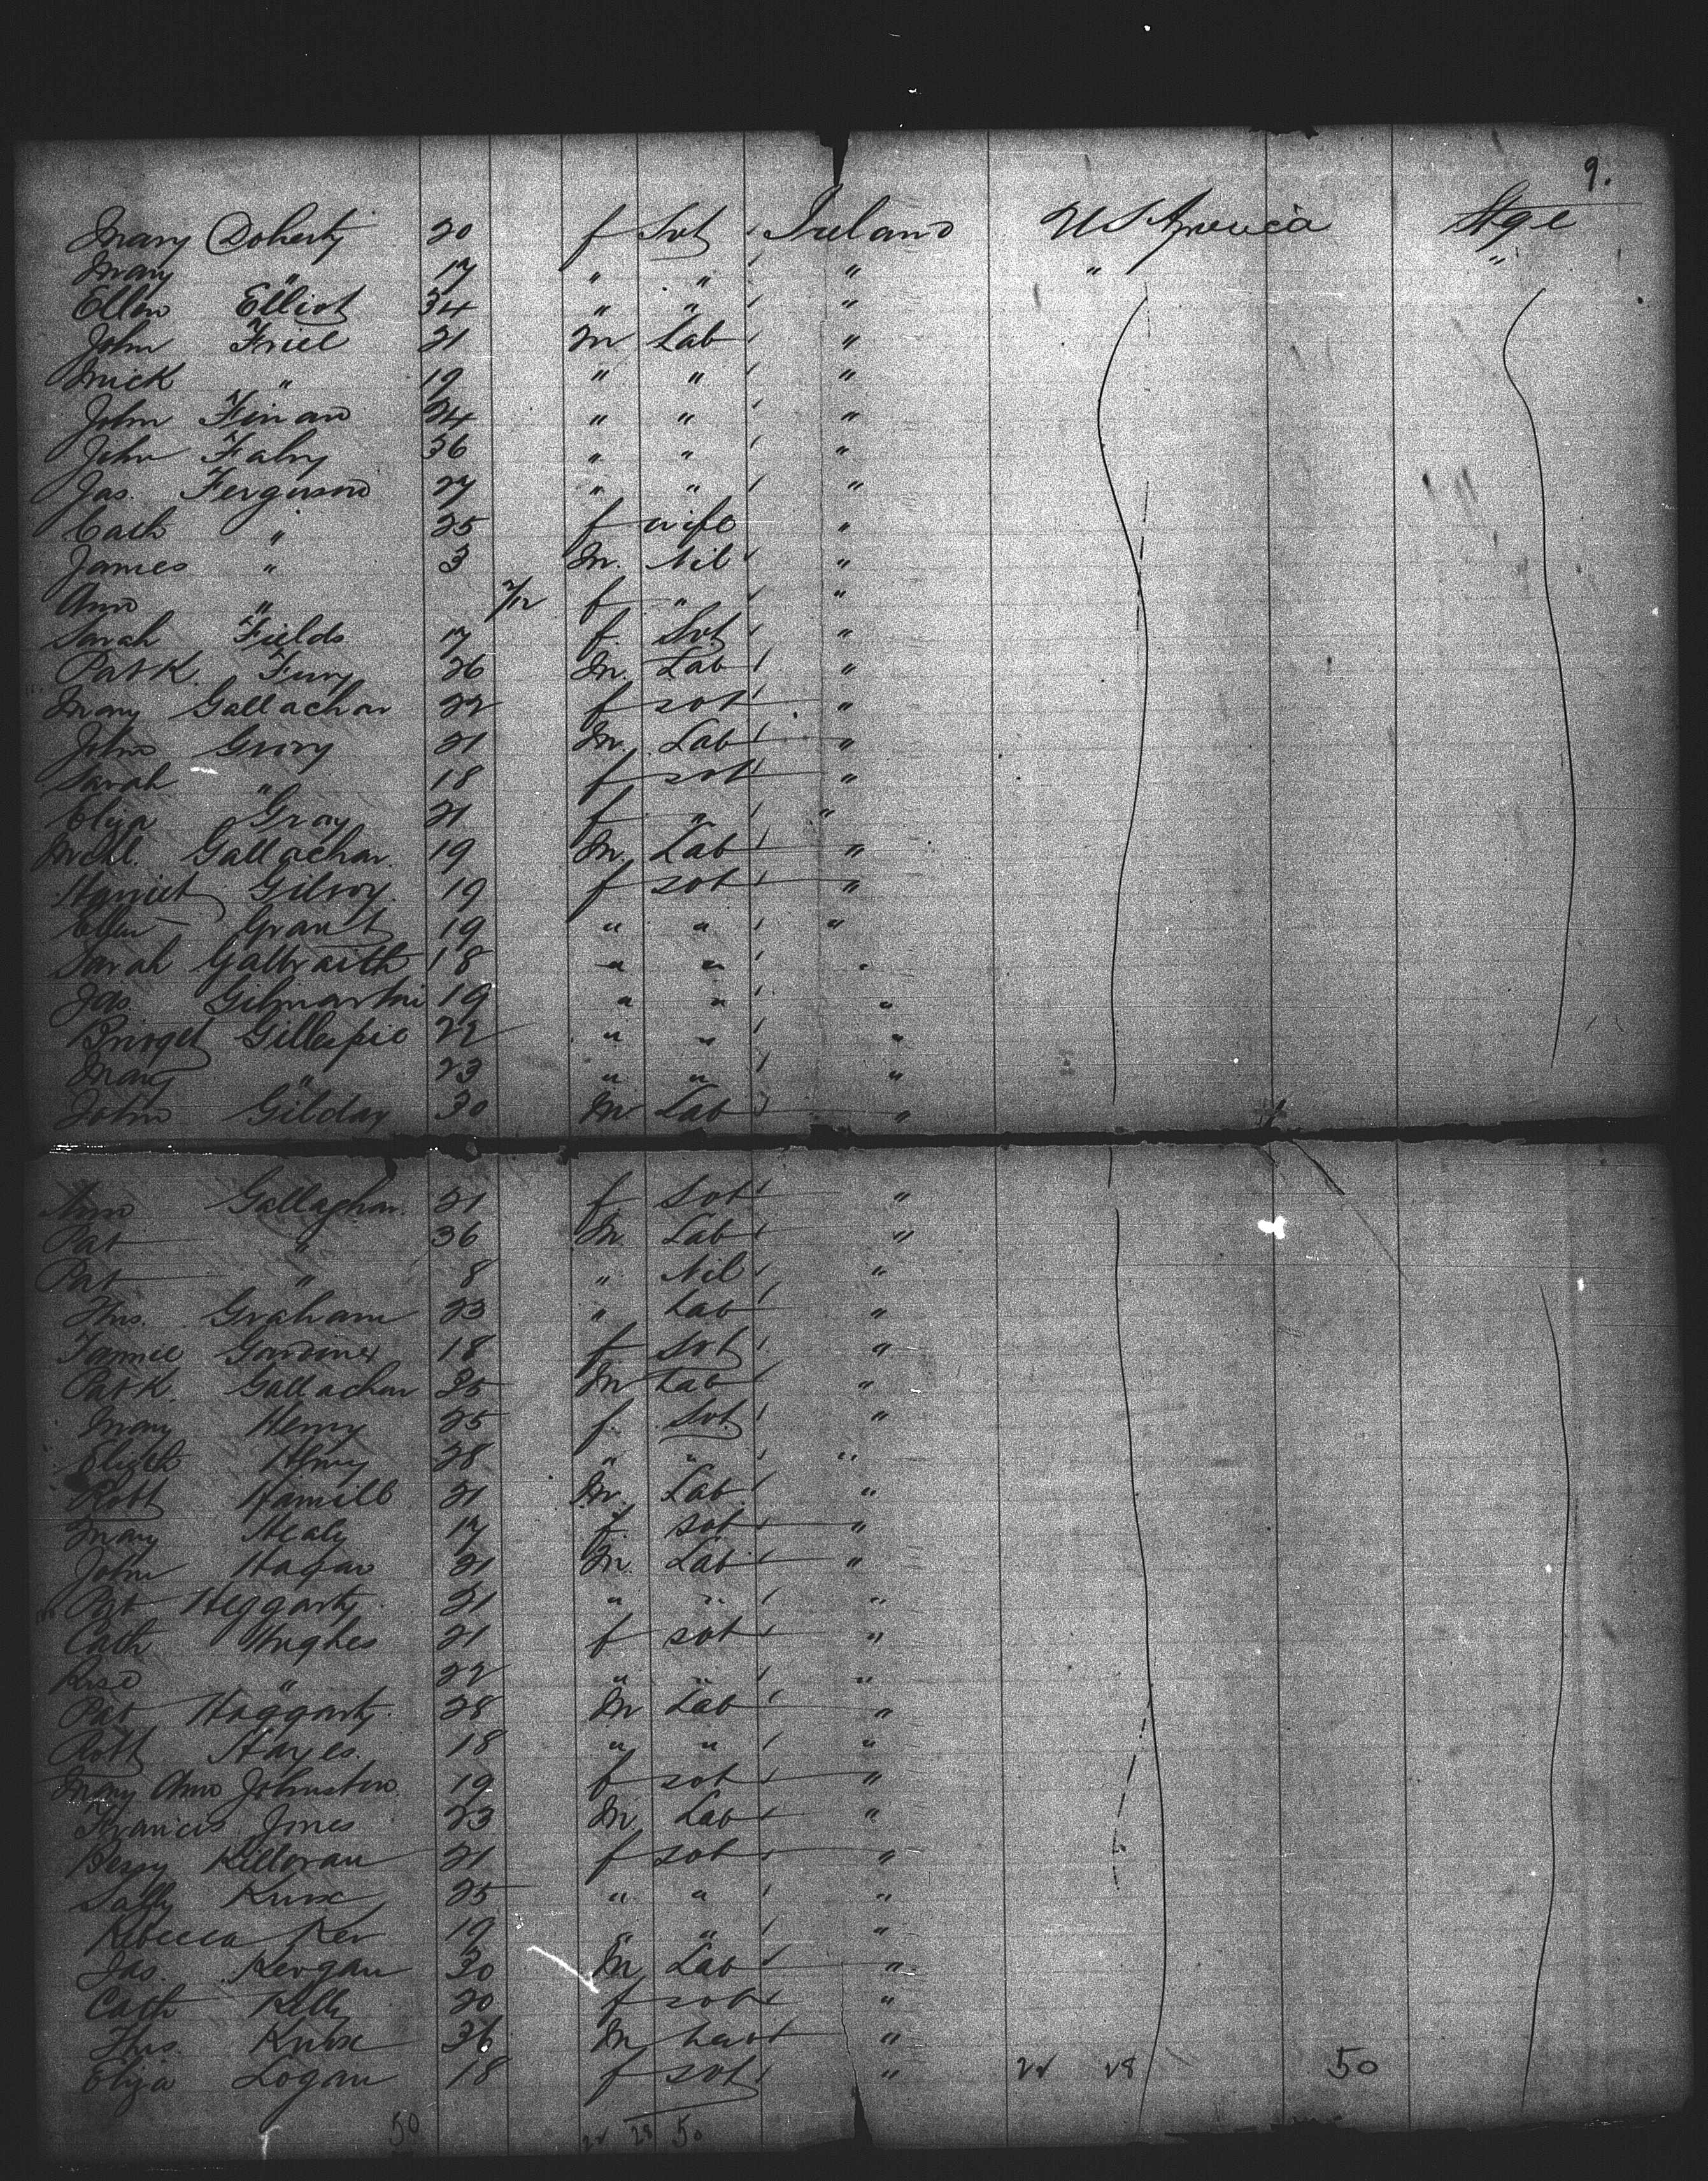 9.
Mary Doherty 20 f Svt Ireland U S America Stge
Mary " 17 " " " " "
Ellen Elliot 34 " " "
John Friel 21 M Lab "
Mick " 19 " " "
John Finan 24 " " "
John Fahy 36 " " "
Jas. Ferguson 27 " " "
Cath " 25 f wife "
James " 3 M. Nil "
Ann " 7/12 f " "
Sarah Fields 17 f. Svt "
Patk. Fury 26 M. Lab "
Mary Gallachar 22 f svt "
John Grory 21 M. Lab "
Sarah " 18 f svt "
Eliza Gray 21 f " "
Mchl. Gallachar. 19 M. Lab "
Harriet Gilroy. 19 f svt "
Ellen Grant 19 " " "
Sarah Galbraith 18 " " "
Jas. Gilmartin 19 " " "
Bridget Gillespie 22 " " "
Mary " 23 " " "
John Gilday 30 M Lab "
Ann Gallaghar. 21 f Svt "
Pat " 36 M Lab "
Pat " 8 " Nil "
Thos. Graham 23 " Lab "
Fannie Gardiner 18 f svt "
Patk. Gallachar 25 M Lab "
Mary Henry 25 f. Svt. "
Elizth Henry 28 " " "
Robt Hamill 21 M. Lab "
Mary Healy 17 f. svt "
John Hagan 21 M. Lab "
Pat Heggarty. 21 " " "
Cath Hughes 21 f svt "
Rose " 22 " " "
Pat Haggarty. 28 M Lab "
Robt Hayes. 18 " " "
Mary Ann Johnston. 19 f svt "
Francis Jones 23 M. Lab "
Bessy Killoran 21 f svt "
Sally 25 " " "
Rebecca Ker 19 " " "
Jas. Kergan 30 M Lab "
Cath Kelly 20 f svt "
Thos. 36 M Lab "
Eliza Logan 18 f svt " 22 28 50
50 22 28 50